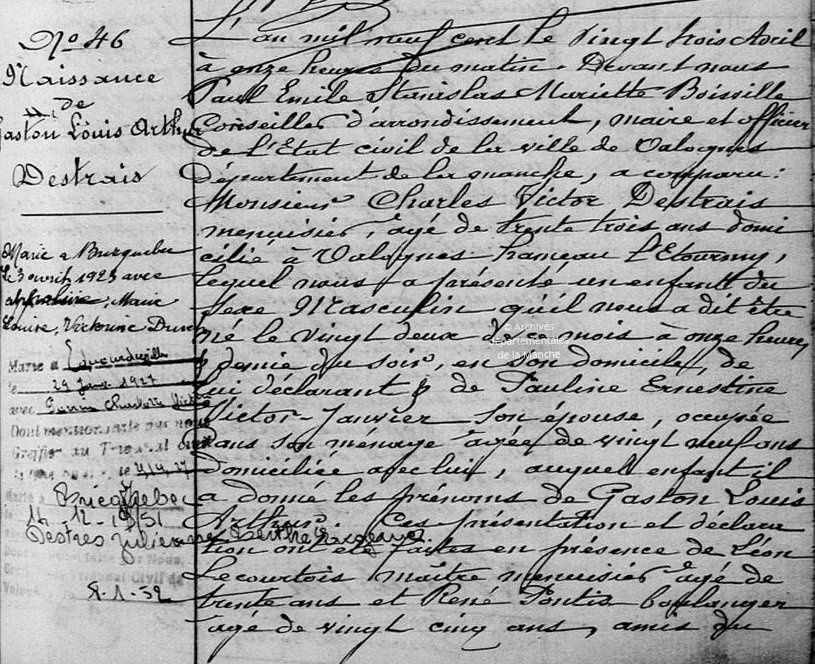 N° 46
Naissance
de
Gaston Louis Arthur
Destrais
Marié à Bricquebec
le 3 avril 1923 avec
Marie
Louise, Victorine
Marié à
le 29 1927
avec Charlotte
Dont mention faite par nous
Greffier au Tribunal civil
Bricquebec
11-12-1951
Destres Julienne Berthe
Tribunal Civil de
8-1-52
L'an mil neuf cent le vingt trois Avril
à onze heures du matin. Devant nous
Paul Emile Stanislas Mariette Boisville
Conseiller d'arrondissement, maire et officier
de l'Etat civil de la ville de Valognes
Département de la manche, a comparu :
Monsieur Charles Victor Destrais
menuisier, âgé de trente trois ans domi
cilié à Valognes hameau l'Etourmy,
lequel nous a présenté un enfant du
Sexe Masculin qu'il nous a dit être
né le vingt deux de ce mois à onze heures
& demie du soir, en son domicile, de
lui déclarant & de Pauline Ernestine
Victor Janvier son épouse, occupée
dans son ménage âgée de vingt neuf ans
domiciliée avec lui, auquel enfant il
a donné les prénoms de Gaston Louis
Arthur. Ces présentation et déclara
tion ont été faites en présence de Léon
Lecourtois maître menuisier âgé de
trente ans et René Pontis boulanger
âgé de vingt cinq ans, amis du
© Archives
départementales
de la Manche